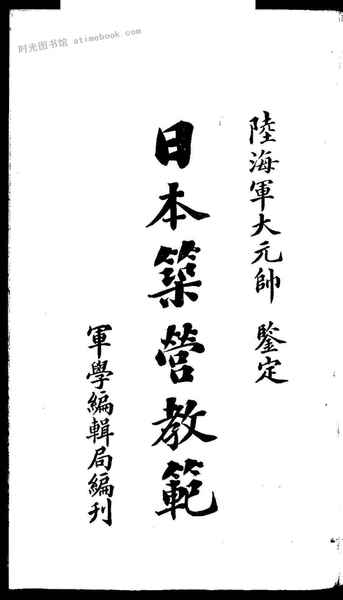 时光图书馆 atimebook.com
陸海軍大元帥 鑒定
日本築營教範
軍學編輯局編刊